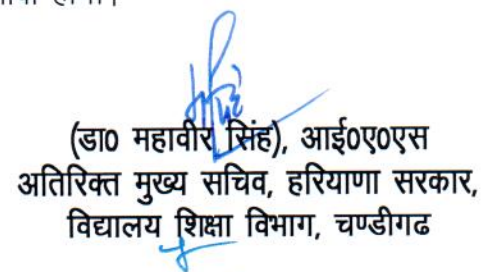 (डा0 महावीर सिंह), आई0ए0एस
अतिरिक्त मुख्य सचिव, हरियाणा सरकार,
विद्यालय शिक्षा विभाग, चण्डीगढ